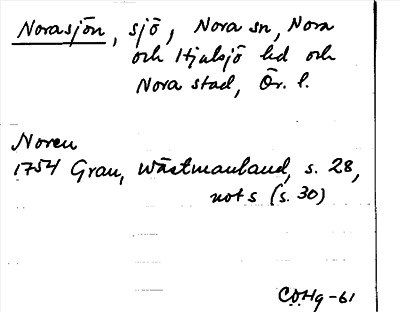 Norasjön, sjö, Nora sn, Nora
och Hjulsjö hd och
Nora stad, Ör. l.
Noren
1754 Grau, Wästmanland, s. 28,
not s (s. 30)
CDHg-61